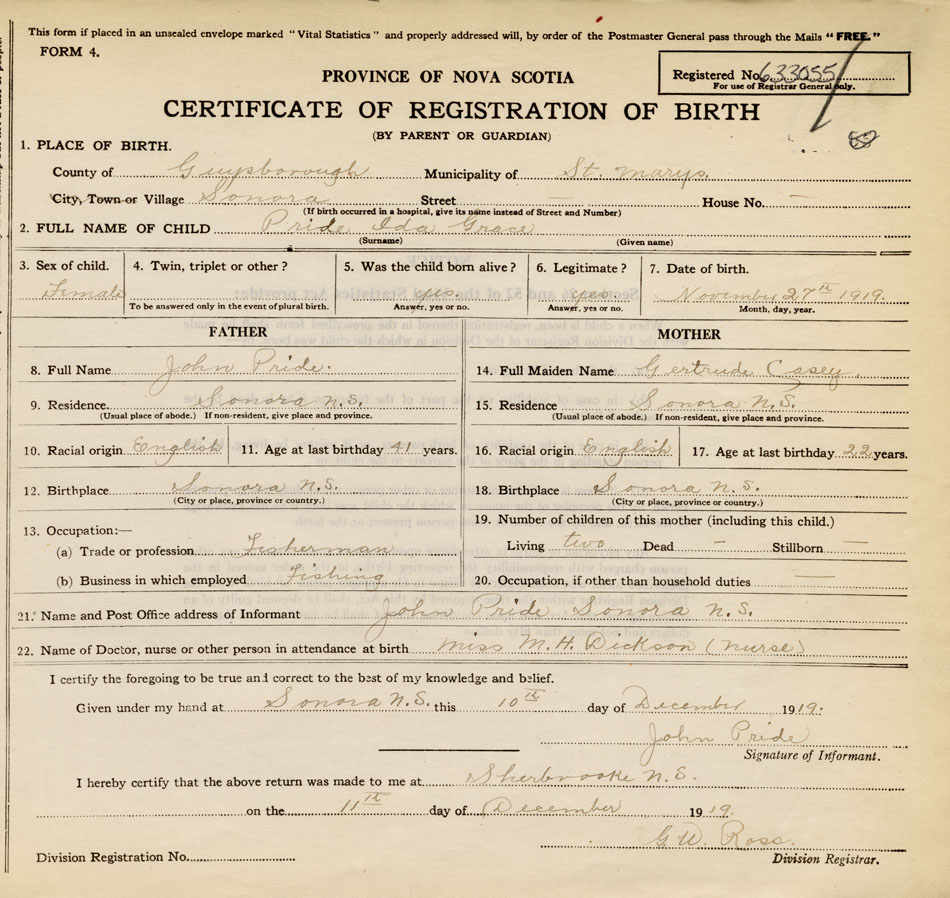 This form if placed in an unsealed envelope marked "Vital Statistics" and properly addressed will, by order of the Postmaster General pass through the Mails "FREE."
FORM 4.
Registered No. 633055
For use of Registrar General only.
PROVINCE OF NOVA SCOTIA
CERTIFICATE OF REGISTRATION OF BIRTH
(BY PARENT OR GUARDIAN)
1. PLACE OF BIRTH.
County of Guysborough Municipality of St. Marys
City, Town or Village Sonora Street — House No. —
(If birth occurred in a hospital, give its name instead of Street and Number)
2. FULL NAME OF CHILD Pride Ida Grace
(Surname) (Given name)
3. Sex of child. 4. Twin, triplet or other? 5. Was the child born alive? 6. Legitimate? 7. Date of birth.
Female yes. yes November 27th 1919.
To be answered only in the event of plural birth. Answer, yes or no. Answer, yes or no. Month, day, year.
FATHER
8. Full Name John Pride.
9. Residence. Sonora N.S.
(Usual place of abode.) If non-resident, give place and province.
10. Racial origin English 11. Age at last birthday 41 years.
12. Birthplace Sonora N.S.
(City or place, province or country.)
13. Occupation:—
(a) Trade or profession Fisherman
(b) Business in which employed Fishing
MOTHER
14. Full Maiden Name Gertrude Casey.
15. Residence Sonora N.S.
(Usual place of abode.) If non-resident, give place and province.
16. Racial origin English 17. Age at last birthday 22 years.
18. Birthplace Sonora N.S.
(City or place, province or country.)
19. Number of children of this mother (including this child.)
Living two Dead — Stillborn —
20. Occupation, if other than household duties —
21. Name and Post Office address of Informant John Pride Sonora N.S.
22. Name of Doctor, nurse or other person in attendance at birth Miss M. H. Dickson (Nurse)
I certify the foregoing to be true and correct to the best of my knowledge and belief.
Given under my hand at Sonora N.S. this 10th day of December 1919.
John Pride
Signature of Informant.
I hereby certify that the above return was made to me at Sherbrooke N.S.
on the 11th day of December 1919.
G. W. Ross.
Division Registration No. Division Registrar.